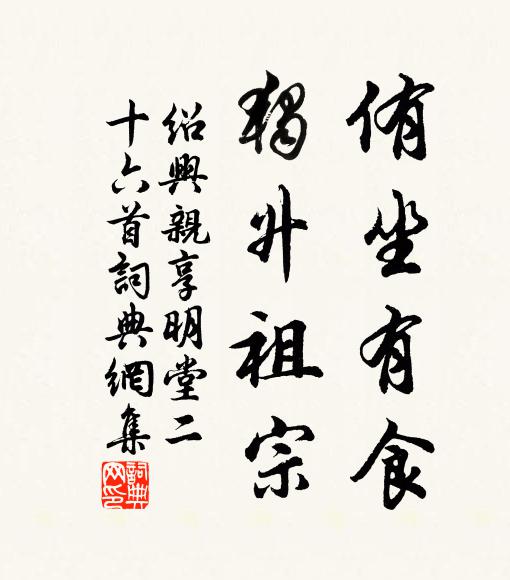 侑坐有食
獨升祖宗
紹興親享明堂二
十六首詞典網集
詞典
网印